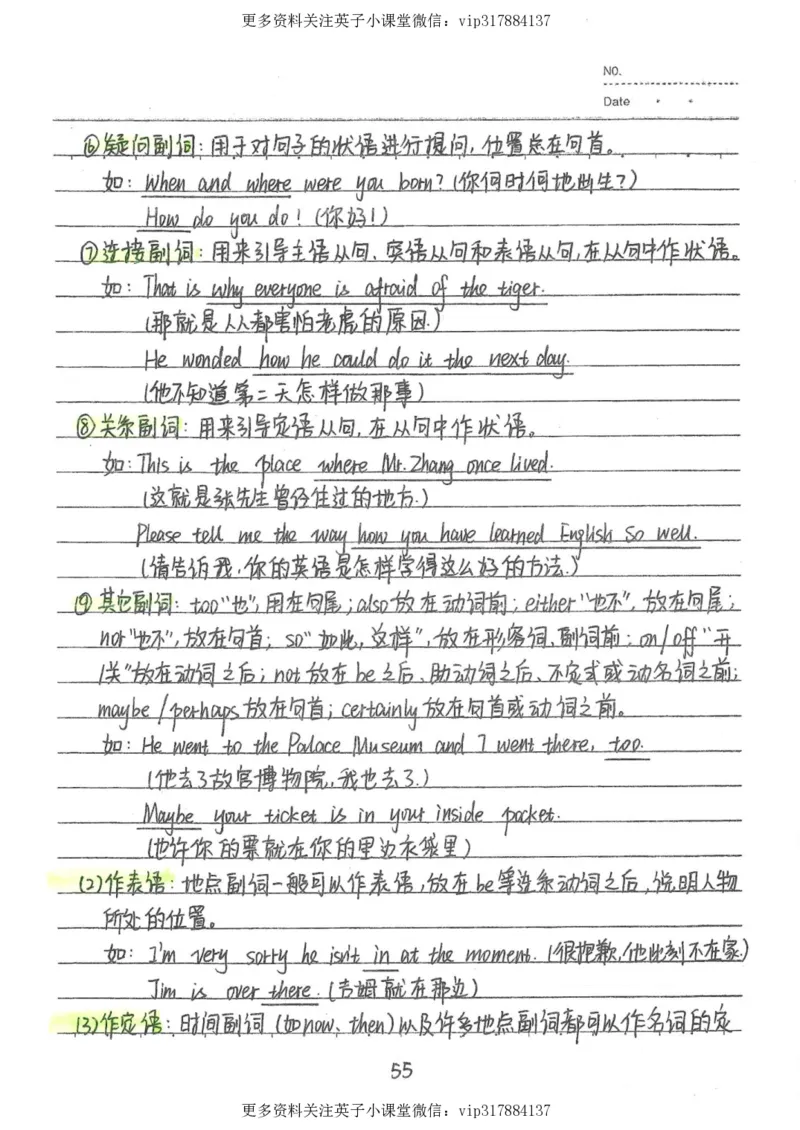 更多资料关注英子小课堂微信：vip317884137
NO.
Date
⑥疑问副词：用于对句子的状语进行提问，位置总在句首。
如：When and where were you born?（你何时何地出生？）
How do you do！（你好！）
⑦连接副词：用来引导主语从句、宾语从句和表语从句，在从句中作状语。
如：That is why everyone is afraid of the tiger.
（那就是人人都害怕老虎的原因.）
He wonded how he could do it the next day.
（他不知道第二天怎样做那事）
⑧关系副词：用来引导定语从句，在从句中作状语。
如：This is the place where Mr. Zhang once lived.
（这就是张先生曾经住过的地方.）
Please tell me the way how you have learned English so well.
（请告诉我，你的英语是怎样学得这么好的方法.）
⑨其它副词：too“也”，用在句尾；also放在动词前；either“也不”，放在句尾；
nor“也不”，放在句首；so“如此，这样”，放在形容词、副词前；on/off“开
/关”放在动词之后；not放在be之后、助动词之后、不定式或动名词之前；
maybe/perhaps放在句首；certainly放在句首或动词之前。
如：He went to the Palace Museum and I went there, too.
（他去了故宫博物院，我也去了.）
Maybe your ticket is in your inside pocket.
（也许你的票就在你的里边衣袋里）
(2)作表语：地点副词一般可以作表语，放在be等连系动词之后，说明人物
所处的位置。
如：I'm very sorry he isn't in at the moment.（很抱歉，他此刻不在家.）
Jim is over there.（吉姆就在那边）
(3)作定语：时间副词（如now、then）以及许多地点副词都可以作名词的定
55
更多资料关注英子小课堂微信：vip317884137